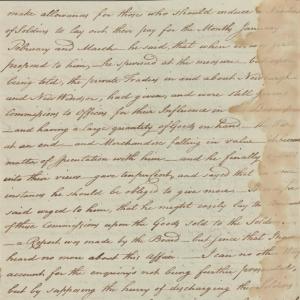 make allowances for those who should induce a
of Soldiers to lay out their pay for the Months January
February and March he said, that when it was
proposed to him, he spurned at the measure, but
being told, the private Traders in and about Newburgh
and New Windsor, had given, and were still
Commissions to Officers for their Influence in
and having a large quantity of Goods on hand the
at an end and Merchandise falling in value
matter of speculation with him and he finally
into their views gave temporarily, and said that
instance he should be obliged to give more It
said urged to him, that he might easily lay the
of these Commissions upon the Goods sold to the Soldiers
a Report was made by the Board but since that I
heard no more about this Affair I can no other
account for the enquiry's not being further
but by supposing the hurry of discharging the